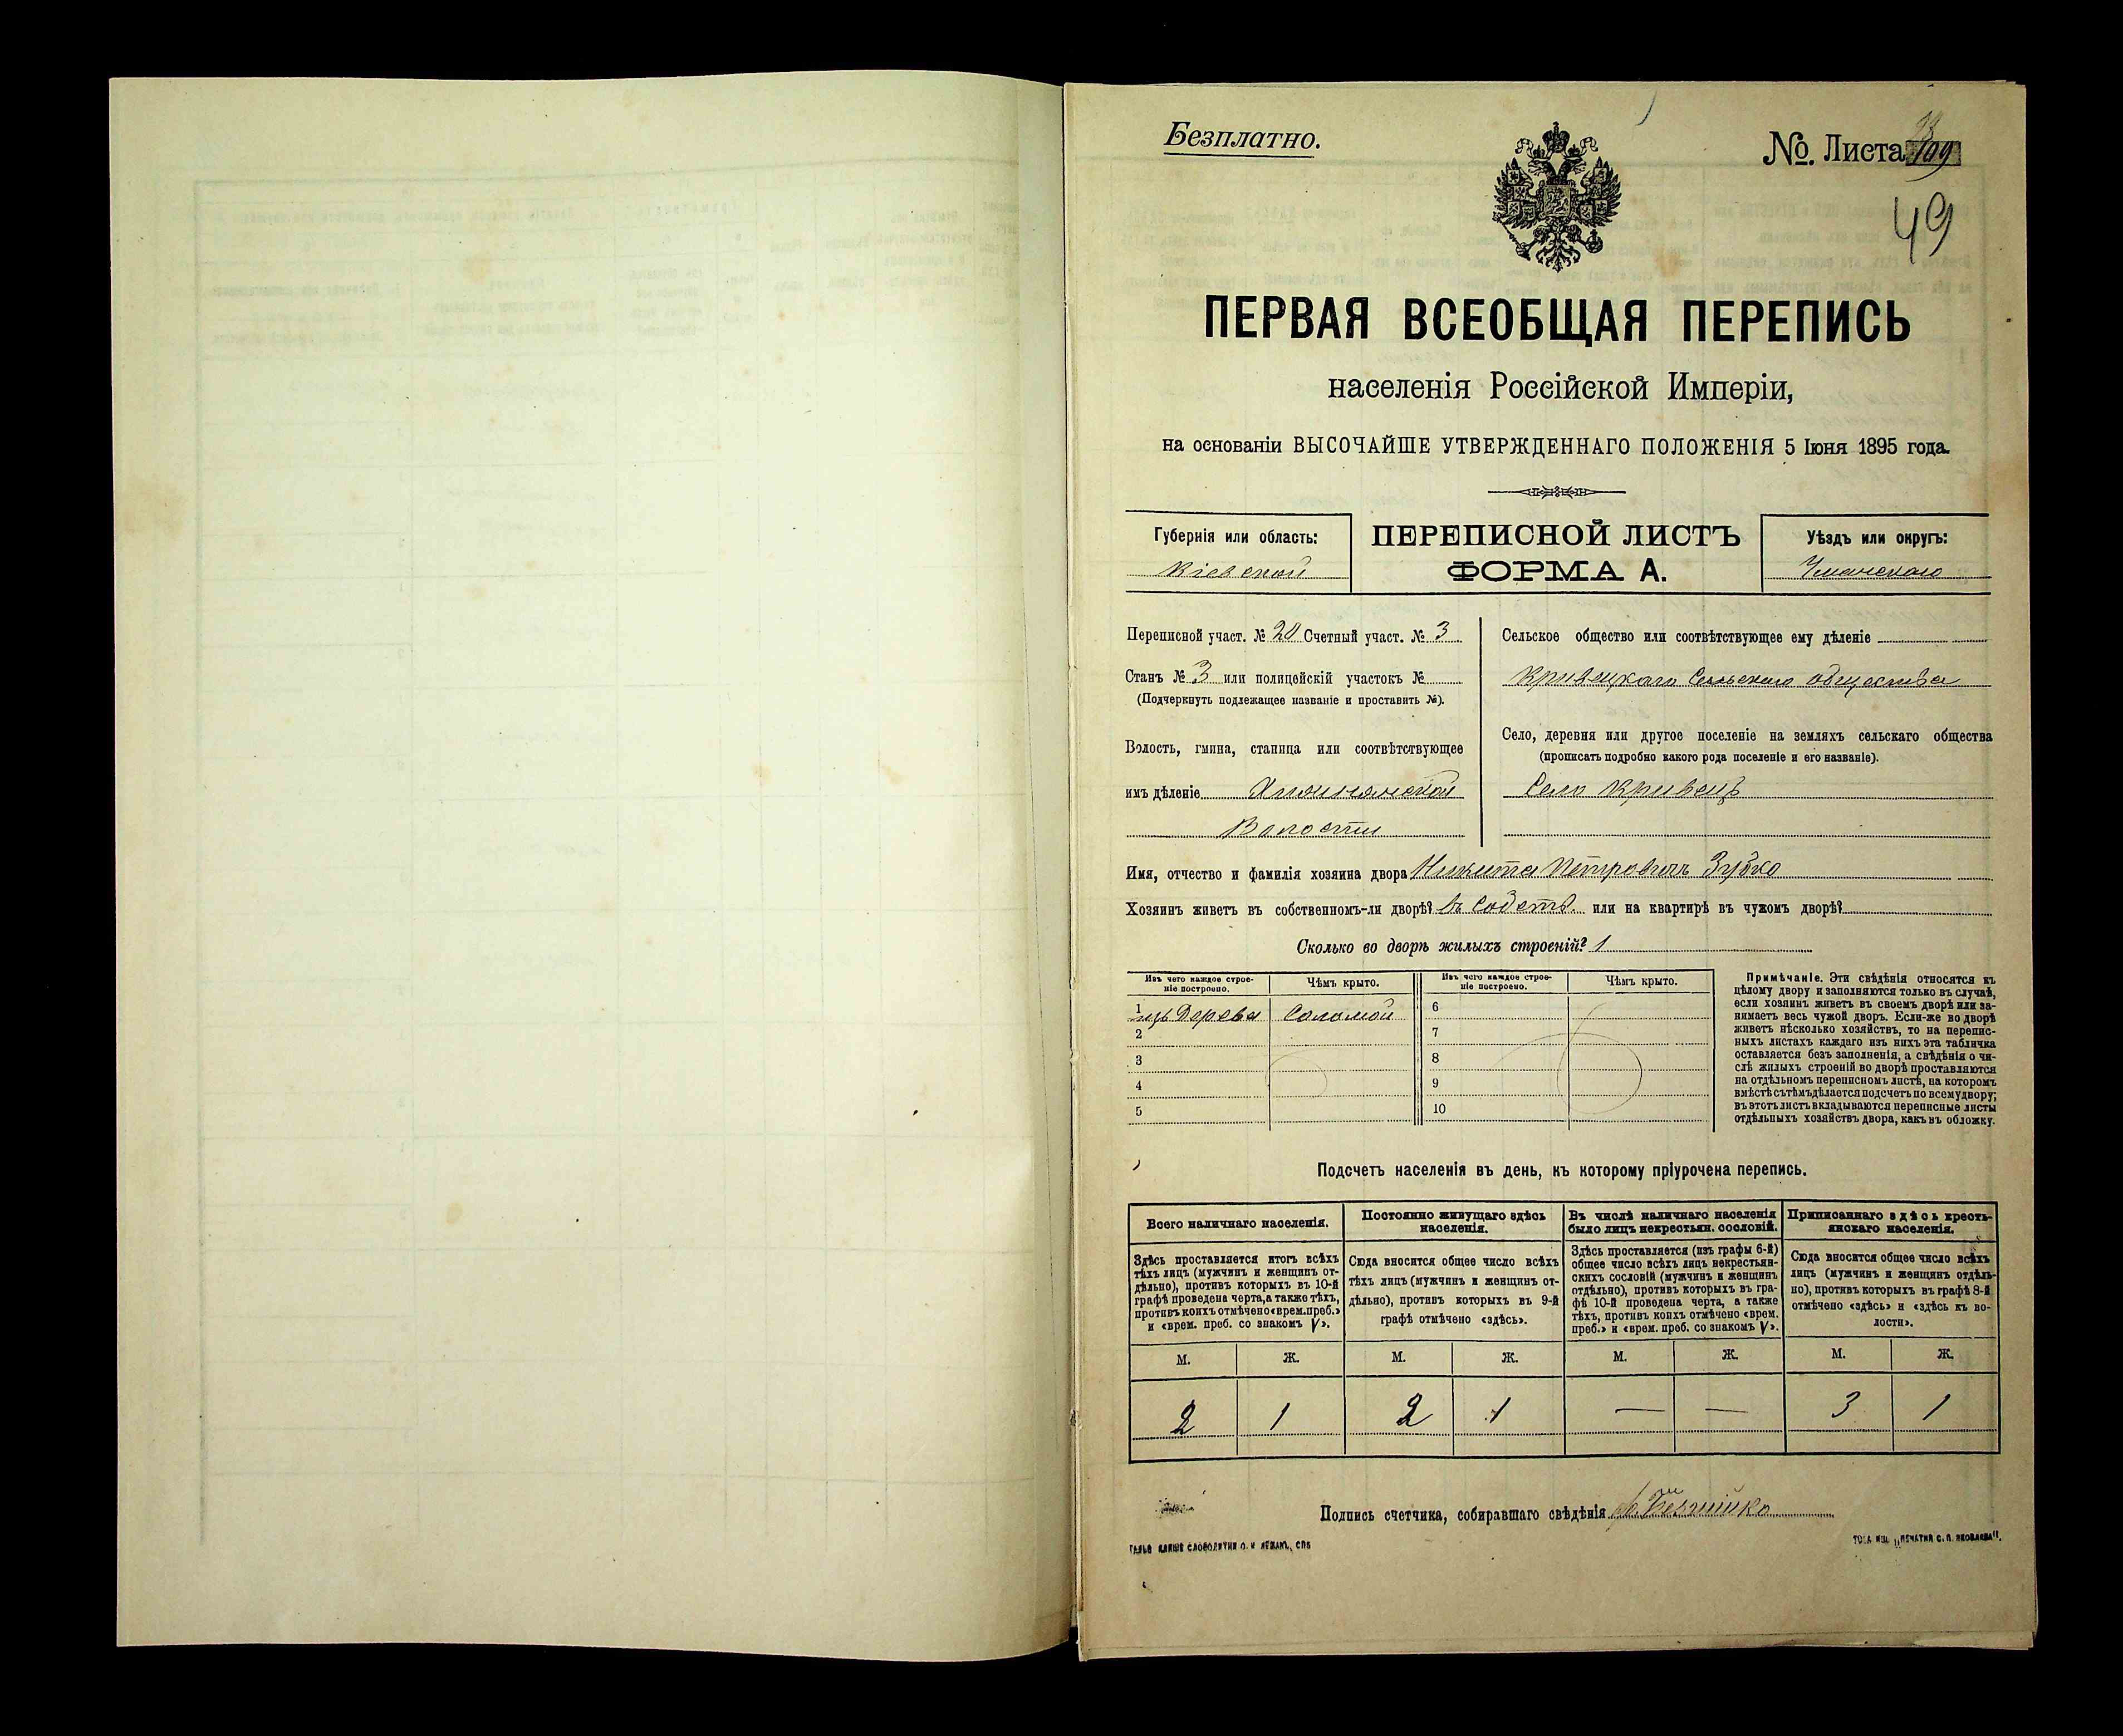 Безплатно.
№ Листа 109
49
ПЕРВАЯ ВСЕОБЩАЯ ПЕРЕПИСЬ
населенія Россійской Имперіи,
на основаніи ВЫСОЧАЙШЕ УТВЕРЖДЕННАГО ПОЛОЖЕНІЯ 5 Іюня 1895 года.
Губернія или область:
Кіевской
ПЕРЕПИСНОЙ ЛИСТЪ
ФОРМА А.
Уѣздъ или округъ:
Уманскаго
Переписной участ. № 20 Счетный участ. № 3
Станъ № 3 или полицейскій участокъ №
(Подчеркнуть подлежащее названіе и проставить №).
Волость, гмина, станица или соотвѣтствующее
имъ дѣленіе
Волости
Сельское общество или соотвѣтствующее ему дѣленіе
Кривецкаго Сельскаго общества
Село, деревня или другое поселеніе на земляхъ сельскаго общества
(прописать подробно какого рода поселеніе и его названіе).
Село Кривецъ
Имя, отчество и фамилія хозяина двора Никита Петровичъ Зубко
Хозяинъ живетъ въ собственномъ-ли дворѣ? въ собств или на квартирѣ въ чужомъ дворѣ?
Сколько во дворѣ жилыхъ строеній? 1
Изъ чего каждое строе-
ніе построено.
Чѣмъ крыто.
Изъ чего каждое строе-
ніе построено.
Чѣмъ крыто.
1 изъ Дерева Соломой
2
3
4
5
6
7
8
9
10
Примѣчаніе. Эти свѣдѣнія относятся къ
цѣлому двору и заполняются только въ случаѣ,
если хозяинъ живетъ въ своемъ дворѣ или за-
нимаетъ весь чужой дворъ. Если-же во дворѣ
живетъ нѣсколько хозяйствъ, то на перепис-
ныхъ листахъ каждаго изъ нихъ эта табличка
оставляется безъ заполненія, а свѣдѣнія о чи-
слѣ жилыхъ строеній во дворѣ проставляются
на отдѣльномъ переписномъ листѣ, на которомъ
вмѣстѣ съ тѣмъ дѣлается подсчетъ по всему двору;
въ этотъ листъ вкладываются переписные листы
отдѣльныхъ хозяйствъ двора, какъ въ обложку.
Подсчетъ населенія въ день, къ которому пріурочена перепись.
Всего наличнаго населенія.
Здѣсь проставляется итогъ всѣхъ
тѣхъ лицъ (мужчинъ и женщинъ от-
дѣльно), противъ которыхъ въ 10-й
графѣ проведена черта, а также тѣхъ,
противъ коихъ отмѣчено «врем. преб.»
и «врем. преб. со знакомъ V».
Постоянно живущаго здѣсь
населенія.
Сюда вносится общее число всѣхъ
тѣхъ лицъ (мужчинъ и женщинъ от-
дѣльно), противъ которыхъ въ 9-й
графѣ отмѣчено «здѣсь».
Въ числѣ наличнаго населенія
было лицъ некрестьян. сословій.
Здѣсь проставляется (изъ графы 6-й)
общее число всѣхъ лицъ некрестьян-
скихъ сословій (мужчинъ и женщинъ
отдѣльно), противъ которыхъ въ гра-
фѣ 10-й проведена черта, а также
тѣхъ, противъ коихъ отмѣчено «врем.
преб.» и «врем. преб. со знакомъ V».
Приписаннаго здѣсь кресть-
янскаго населенія.
Сюда вносится общее число всѣхъ
лицъ (мужчинъ и женщинъ отдѣль-
но), противъ которыхъ въ графѣ 8-й
отмѣчено «здѣсь» и «здѣсь къ во-
лости».
М. Ж. М. Ж. М. Ж. М. Ж.
2 1 2 1 — — 3 1
Подпись счетчика, собиравшаго свѣдѣнія